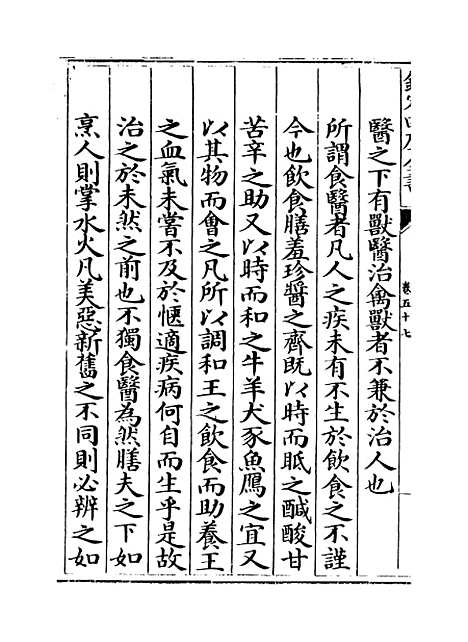 欽定四庫全書
卷五十七
醫之下有獸醫治禽獸者不兼於治人也
所謂食醫者凡人之疾未有不生於飲食之不謹
今也飲食膳羞珍醬之齊既以時而眡之鹹酸甘
苦辛之助又以時而和之牛羊犬豕魚鴈之宜又
以其物而會之凡所以調和王之飲食而助養王
之血氣未嘗不及於愜適疾病何自而生乎是故
治之於未然之前也不獨食醫為然膳夫之下如
烹人則掌水火凡美惡新舊之不同則必辨之如